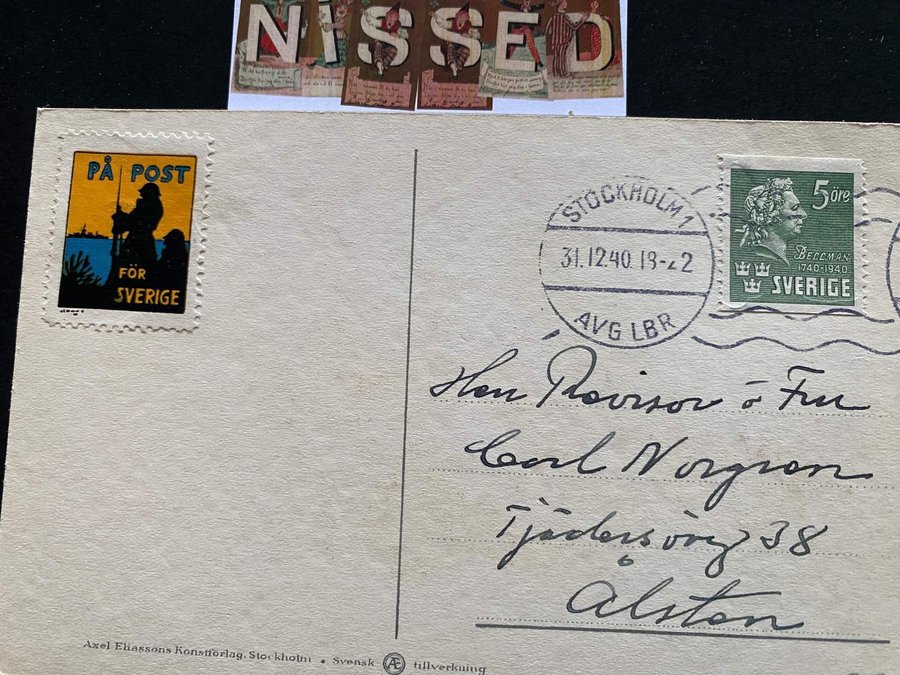 NISSED
PÅ POST
FÖR
SVERIGE
STOCKHOLM 1
31.12.40.18-22
AVG LBR
5 öre
BELLMAN
1740-1940
SVERIGE
Herr Revisor o Fru
Carl Norgren
38
Ålsten
Axel Eliassons Konstförlag, Stockholm • Svensk Æ tillverkning